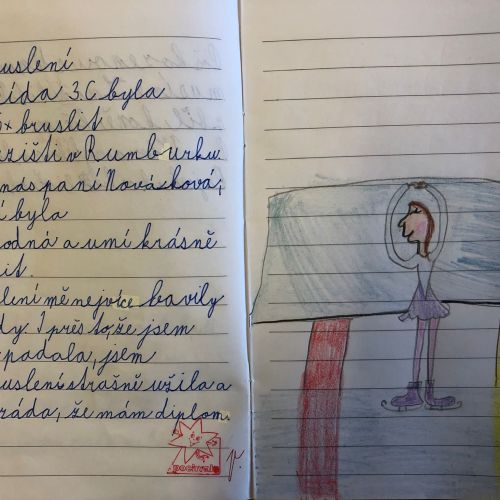 uslení
ída 3.C byla
5x bruslit
zišti v Rumburku.
nás paní Nováková,
í byla
odná a umí krásně
it.
lení mě nejvíce bavily
dy. I přes to, že jsem
padala, jsem
uslení strašně užila a
ráda, že mám diplom.
pochvala